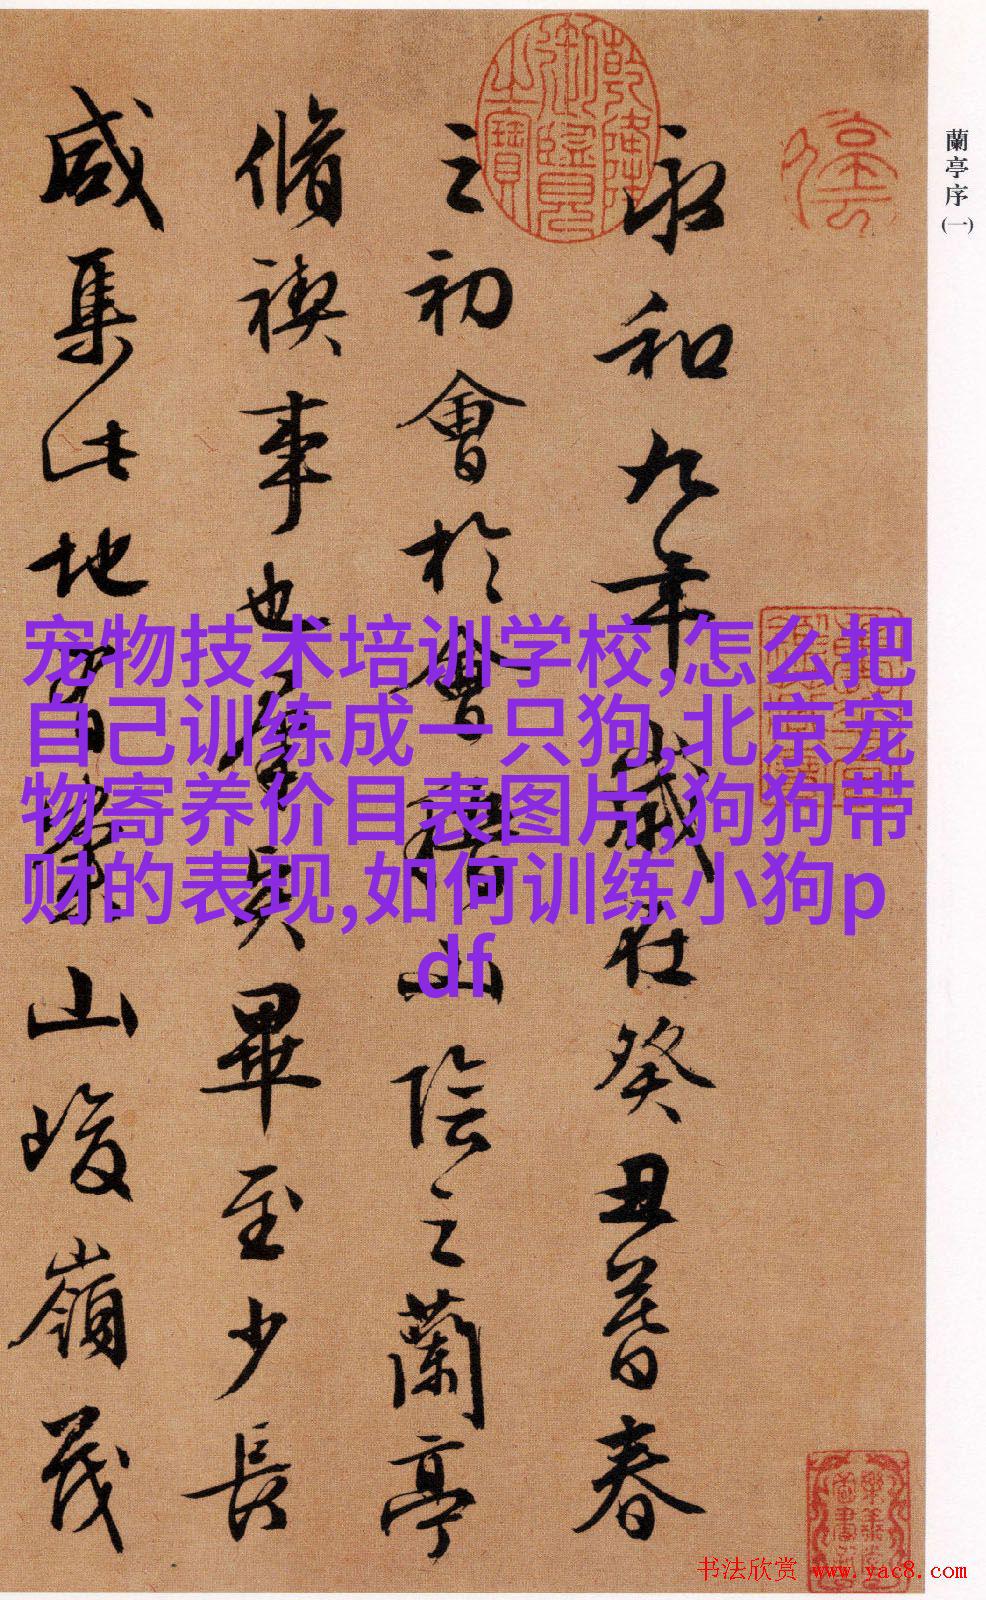 蘭亭序(一)
永和九年歲在癸丑暮春
之初會於會稽山陰之蘭亭
脩禊事也羣賢畢至少長
咸集此地有崇山峻嶺茂
乾隆御覽之寶
宠物技术培训学校,怎么把
自己训练成一只狗,北京宠
物寄养价目表图片,狗狗带
财的表现,如何训练小狗p
df
书法欣赏 www.yac8.com